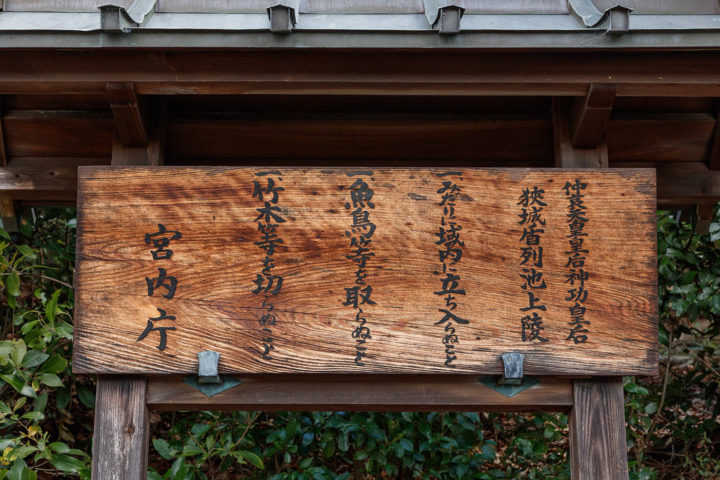 仲哀天皇皇后神功皇后
狹城盾列池上陵
一、みだりに域内に立ち入らぬこと
一、魚鳥等を取らぬこと
一、竹木等を切らぬこと
宮内庁